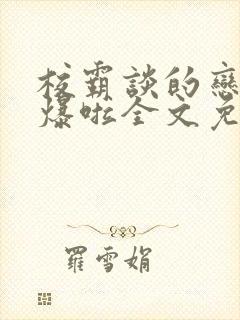 校霸談的戀
爆啦全文免
羅雪娟